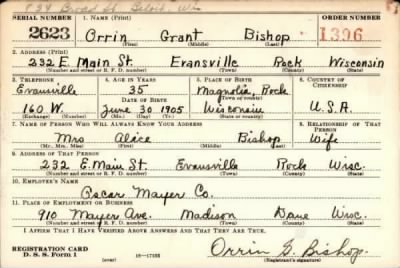 734 Broad St. Beloit, Wis
SERIAL NUMBER 1. NAME (Print) ORDER NUMBER
2623 Orrin Grant Bishop 1396
(First) (Middle) (Last)
2. ADDRESS (Print)
232 E. Main St. Evansville Rock Wisconsin
(Number and street or R. F. D. number) (Town) (County) (State)
3. TELEPHONE 4. AGE IN YEARS 5. PLACE OF BIRTH 6. COUNTRY OF CITIZENSHIP
Evansville 35 Magnolia, Rock
DATE OF BIRTH (Town or county)
160 W. June 30 1905 Wisconsin U.S.A.
(Exchange) (Number) (Mo.) (Day) (Yr.) (State or country)
7. NAME OF PERSON WHO WILL ALWAYS KNOW YOUR ADDRESS 8. RELATIONSHIP OF THAT PERSON
Mrs Alice Bishop Wife
(Mr., Mrs., Miss) (First) (Middle) (Last)
9. ADDRESS OF THAT PERSON
232 E. Main St. Evansville Rock Wisc.
(Number and street or R. F. D. number) (Town) (County) (State)
10. EMPLOYER'S NAME
Oscar Mayer Co.
11. PLACE OF EMPLOYMENT OR BUSINESS
910 Mayer Ave. Madison Dane Wisc.
(Number and street or R. F. D. number) (Town) (County) (State)
I AFFIRM THAT I HAVE VERIFIED ABOVE ANSWERS AND THAT THEY ARE TRUE.
REGISTRATION CARD
D. S. S. Form 1 16—17105 Orrin G. Bishop